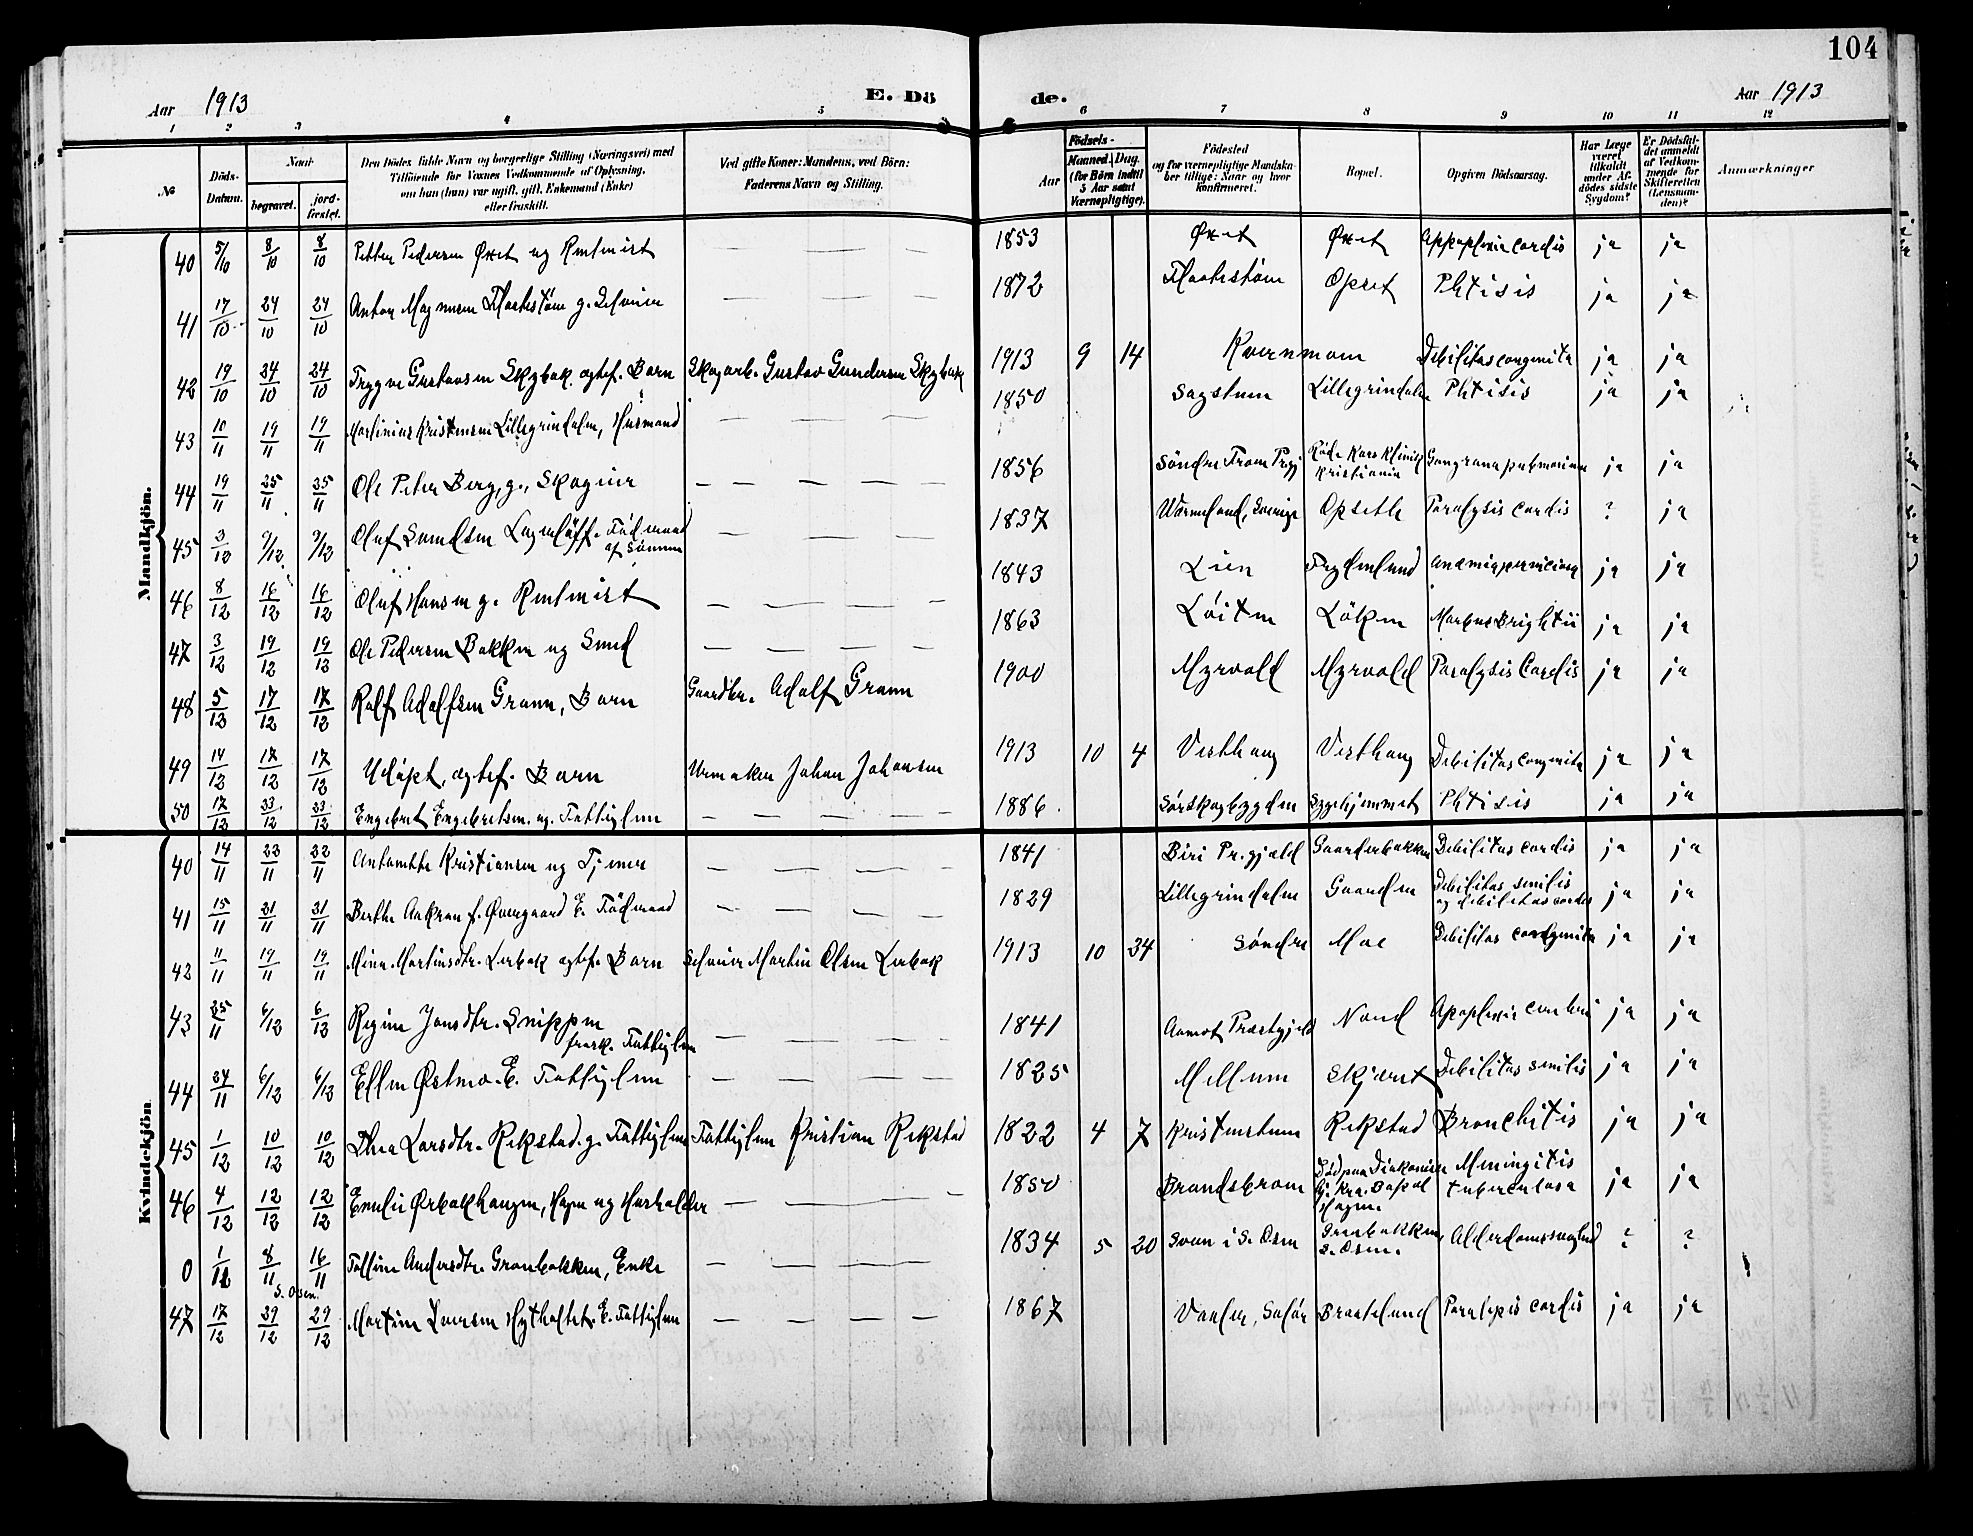 104
Aar 1913 E. Dö de. Aar 1913
1 2 3 4 5 6 7 8 9 10 11 12
№
Döds-
Datum.
Naar
begravet.
jord-
fæstet.
Den Dödes fulde Navn og borgerlige Stilling (Næringsvei) med
Tilföiende for Voxnes Vedkommende af Oplysning,
om han (hun) var ugift, gift, Enkemand (Enke)
eller fraskilt.
Ved gifte Koner: Mandens, ved Börn:
Faderens Navn og Stilling.
Födsels-
Aar
Maaned. Dag.
(for Börn indtil
5 Aar samt
Værnepligtige).
Födested
og for værnepligtige Mandska-
ber tillige: Naar og hvor
konfirmeret.
Bopæl.
Opgiven Dödsaarsag.
Har Læge
været
tilkaldt
under Af-
dödes sidste
Sygdom?
Er Dödsfal-
det anmeldt
af Vedkom-
mende for
Skifteretten
(Lensman-
den)?
Anmærkninger
Mandkjön.
40 5/10 8/10 8/10 Petter Pedersen Øxet ug Rentenist — — — 1853 Øxet Øxet Appoplexia cordis ja ja
41 17/10 24/10 24/10 Anton Magnusen g. — — — 1872 Opset Phtisis ja ja
42 19/10 24/10 24/10 Trygve Gustavsen Skybak. ægtef. Barn Skogarb. Gustav Gundersen Skybak 1913 9 14 Kvernmoen Debilitas congenita ja ja
43 10/11 19/11 19/11 Martinius Kristensen Lillegrindalen, Husmand — — — 1850 Sagstuen Lillegrindalen Phtisis ja ja
44 19/11 25/11 25/11 Ole Peter Berg, g., Skogeier — — — — 1856 Söndre Troen Prgj Röde Kors Klinik Kristiania Gangræna pulmonum ja ja
45 3/12 9/12 9/12 Oluf Svendsen Födsmand af Sönnen — — — 1837 Wærmland, Sverige Opseth Paralysis cordis ? ja
46 8/12 16/12 16/12 Oluf Hansen g. Rentenist — — — — 1843 Lien Frydenlund anæmia perniciosa ja ja
47 3/12 19/12 19/12 Ole Pedersen Bakken ug Smed — — — — 1863 Löiten Löken Morbus Brightii ja ja
48 5/12 17/12 17/12 Rolf Adolfsen Grann, Barn Gaardbr. Adolf Grann 1900 Myrvold Myrvold Paralysis Cordis ja ja
49 14/12 17/12 17/12 Udöpt, ægtef. Barn Urmaker Johan Johansen 1913 10 4 Vesthaug Vesthaug Debilitas congenita ja ja
50 17/12 23/12 23/12 Engebret Engebretsen. ug. Fattiglem — — — — 1886 Sörskogbygden Sygehjemmet Phtisis ja ja
Kvindekjön
40 14/11 23/11 22/11 Antonette Kristiansen ug Tjener — — — — 1841 Biri Pr.gjæld Gaarderbakken Debilitas cordis ja ja
41 15/11 21/11 21/11 Berthe Aakran f. Øvergaard E. Födsmand — — — — 1829 Lillegrindalen Gaarden Debilitas senilis og debilitas cordis ja ja
42 11/11 19/11 19/11 Mina Martinsdtr. Lerbak ægtef. Barn Martin Olsen Lerbak 1913 10 24 Söndre Moe Debilitas congenita ja ja
43 25/11 6/12 6/12 Regine Jonsdtr. Snippen
frask. Fattiglem — — — — 1841 Aamot Præstgjeld Nord Apoplexia cerebri ja ja
44 24/11 6/12 6/12 Ellen Østmo. E. Fattiglem — — — — 1825 Mellum Skjæret Debilitas senilis ja ja
45 1/12 10/12 10/12 Thea Larsdtr. Rekstad. g. Fattiglem Fattiglem Kristian Rekstad 1822 4 7 Kristenstuen Rekstad Bronchitis ja ja
46 4/12 12/12 12/12 Emilie Ørbækhaugen, ug Husholder — — — 1850 Brandsbraaten Död paa Diakonisse
hj. Kra. Bopæl
Hagen. Meningitis tuberculosa ja ja
0 1/11 8/11 16/11 Andersdtr. Grønbakken, Enke — — — — 1834 5 20 Svea i S. Osen Grønbakken, S. Osen. Alderdomssvaghed ? ?
S. Osen.
47 17/12 29/12 29/12 Martine Iversen E. Fattiglem — — — — 1867 Vaaler, Solör Braatelund Paralysis cordis ja ja